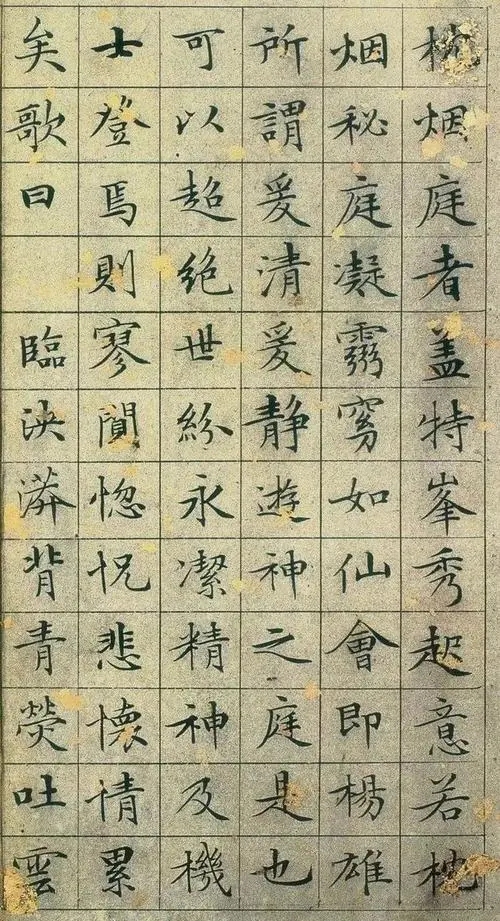 枕烟庭者盖特峯秀起意若枕
烟秘庭凝靈窈如仙會即楊雄
所謂爰清爰静遊神之庭是也
可以超絶世紛永潔精神及機
士登焉則寥闃惚怳悲懷情累
矣歌曰 臨泱漭背青熒吐雲